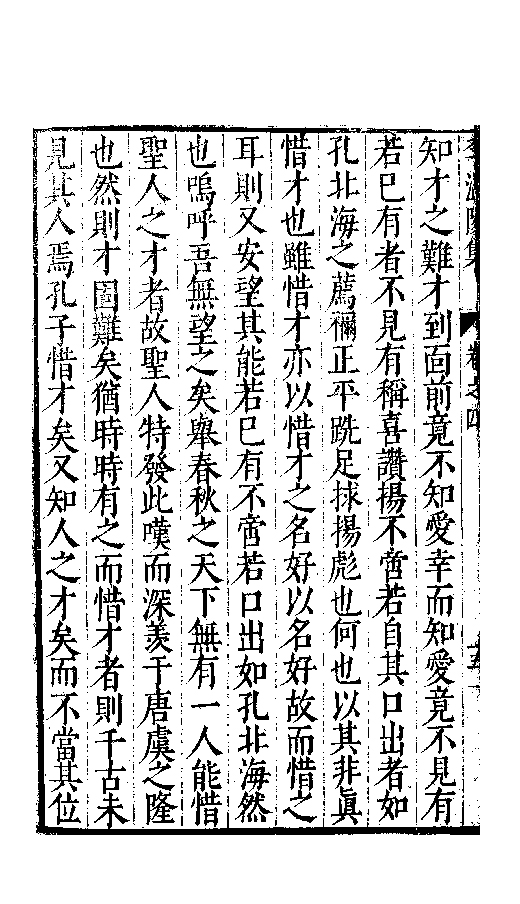 李溫陵集 卷之四
知才之難才到面前竟不知愛幸而知愛竟不見有
若已有者不見有稱喜讚揚不啻若自其口出者如
孔北海之薦禰正平跣足捄揚彪也何也以其非眞
惜才也雖惜才亦以惜才之名好以名好故而惜之
耳則又安望其能若已有不啻若口出如孔北海然
也嗚呼吾無望之矣舉春秋之天下無有一人能惜
聖人之才者故聖人特發此嘆而深羨于唐虞之隆
也然則才固難矣猶時時有之而惜才者則千古未
見其人焉孔子惜才矣又知人之才矣而不當其位